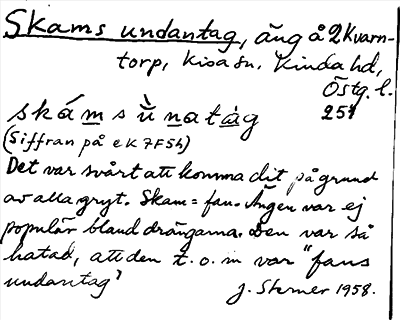 Skams undantag, äng å 2 Kvarn-
torp, Kisa sn. Kinda hd,
Östg. l.
skám s ù natàg 251
(Siffran på ek 7F5h)
Det var svårt att komma dit på grund
av alla gryt. Skam = fan. Ängen var ej
populär bland drängarna. Den var så
hatad, att den t. o. m var "fans
undantag"
J. Sterner 1958.